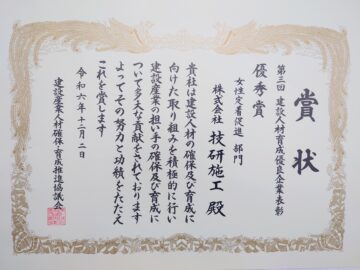 賞状
第三回 建設人材育成優良企業表彰
優秀賞
女性定着促進 部門
株式会社 技研施工 殿
貴社は建設人材の確保及び育成に
向けた取り組みを積極的に行い
建設産業の担い手の確保及び育成に
ついて多大な貢献をされております
よってその努力と功績をたたえ
これを賞します
令和六年十二月二日
建設産業人材確保・育成推進協議会